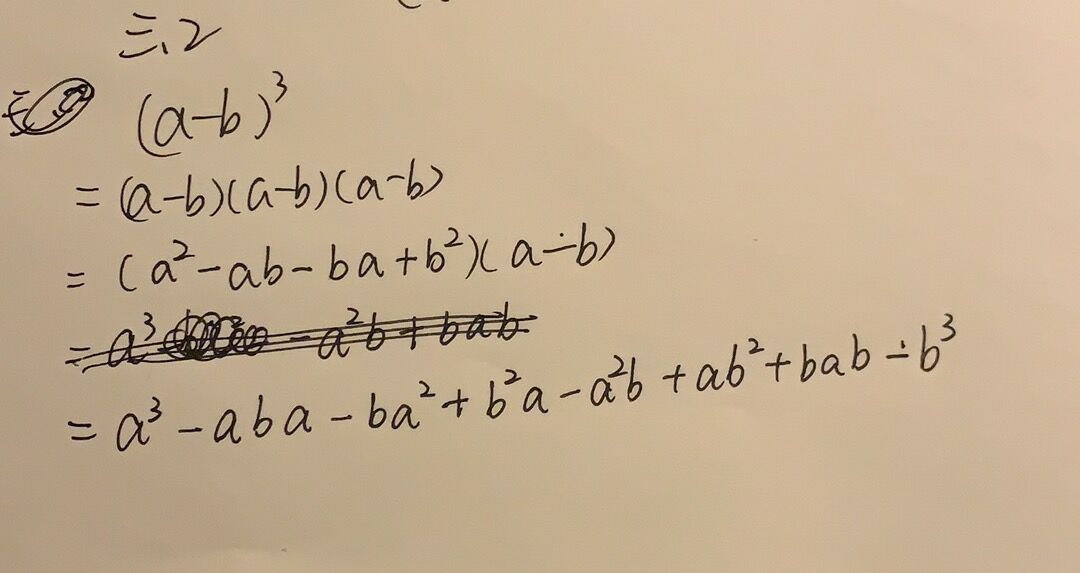 三、2
(a-b)³
= (a-b)(a-b)(a-b)
= (a²-ab-ba+b²)(a-b)
= a³ -a²b+bab
= a³-aba-ba²+b²a-a²b+ab²+bab-b³